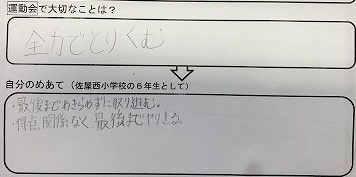 運動会で大切なことは?
全力でとりくむ
自分のめあて(佐屋西小学校の6年生として)
・最後まであきらめずに取り組む。
・得点関係なく、最後までやりきる。